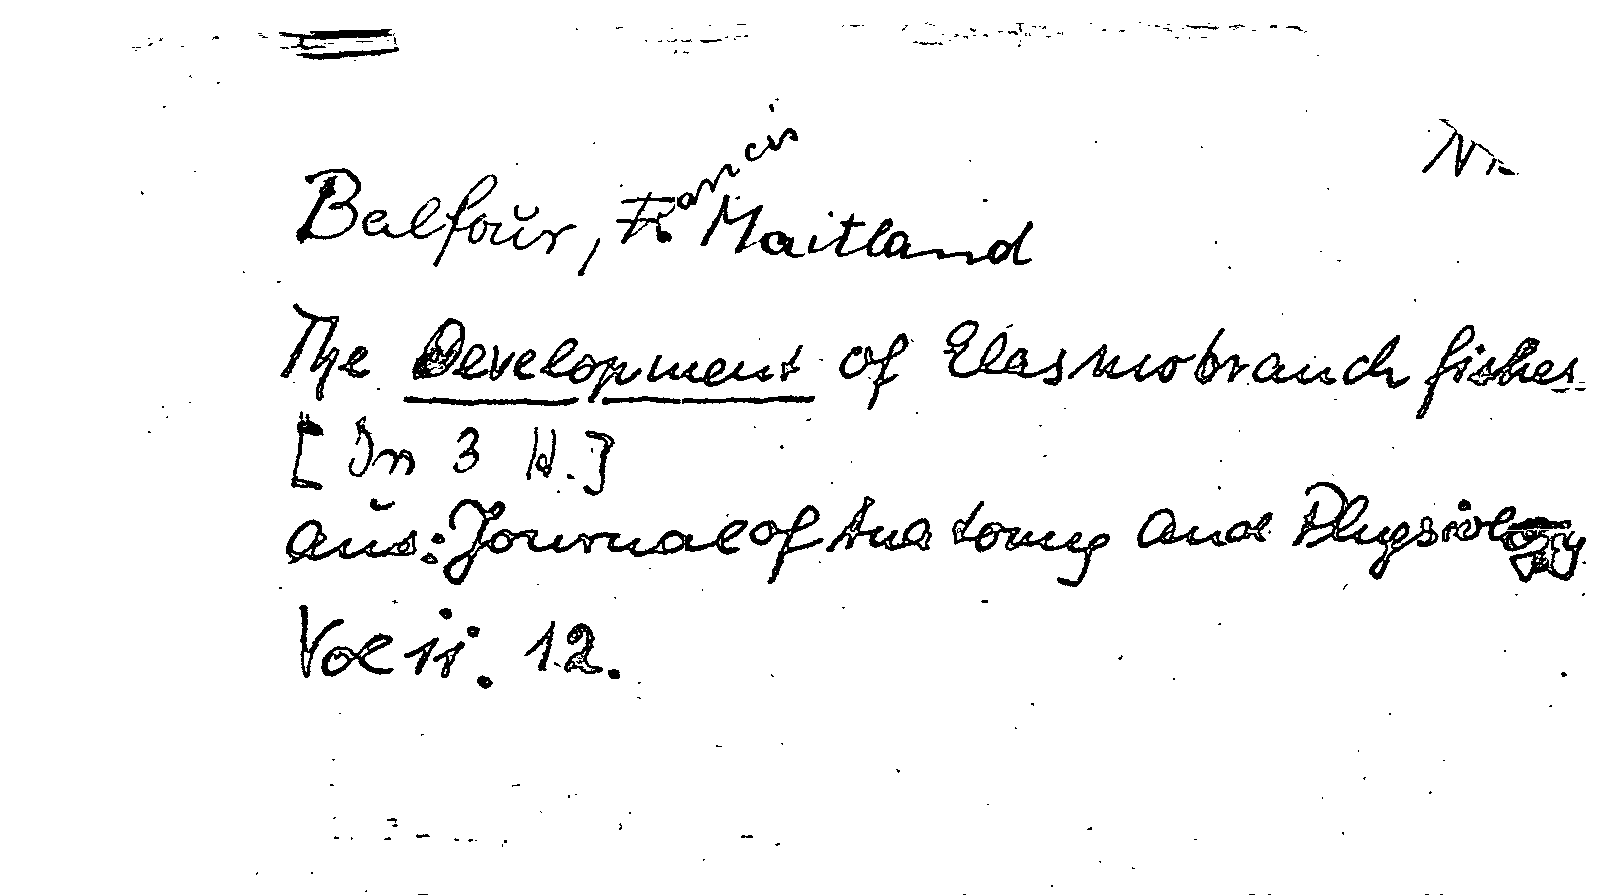 Nr.
Balfour, Francis Maitland
The Development of Elasmobranch fishes
[In 3 H.]
aus: Journal of Anatomy and Physiology
Vol 11. 12.